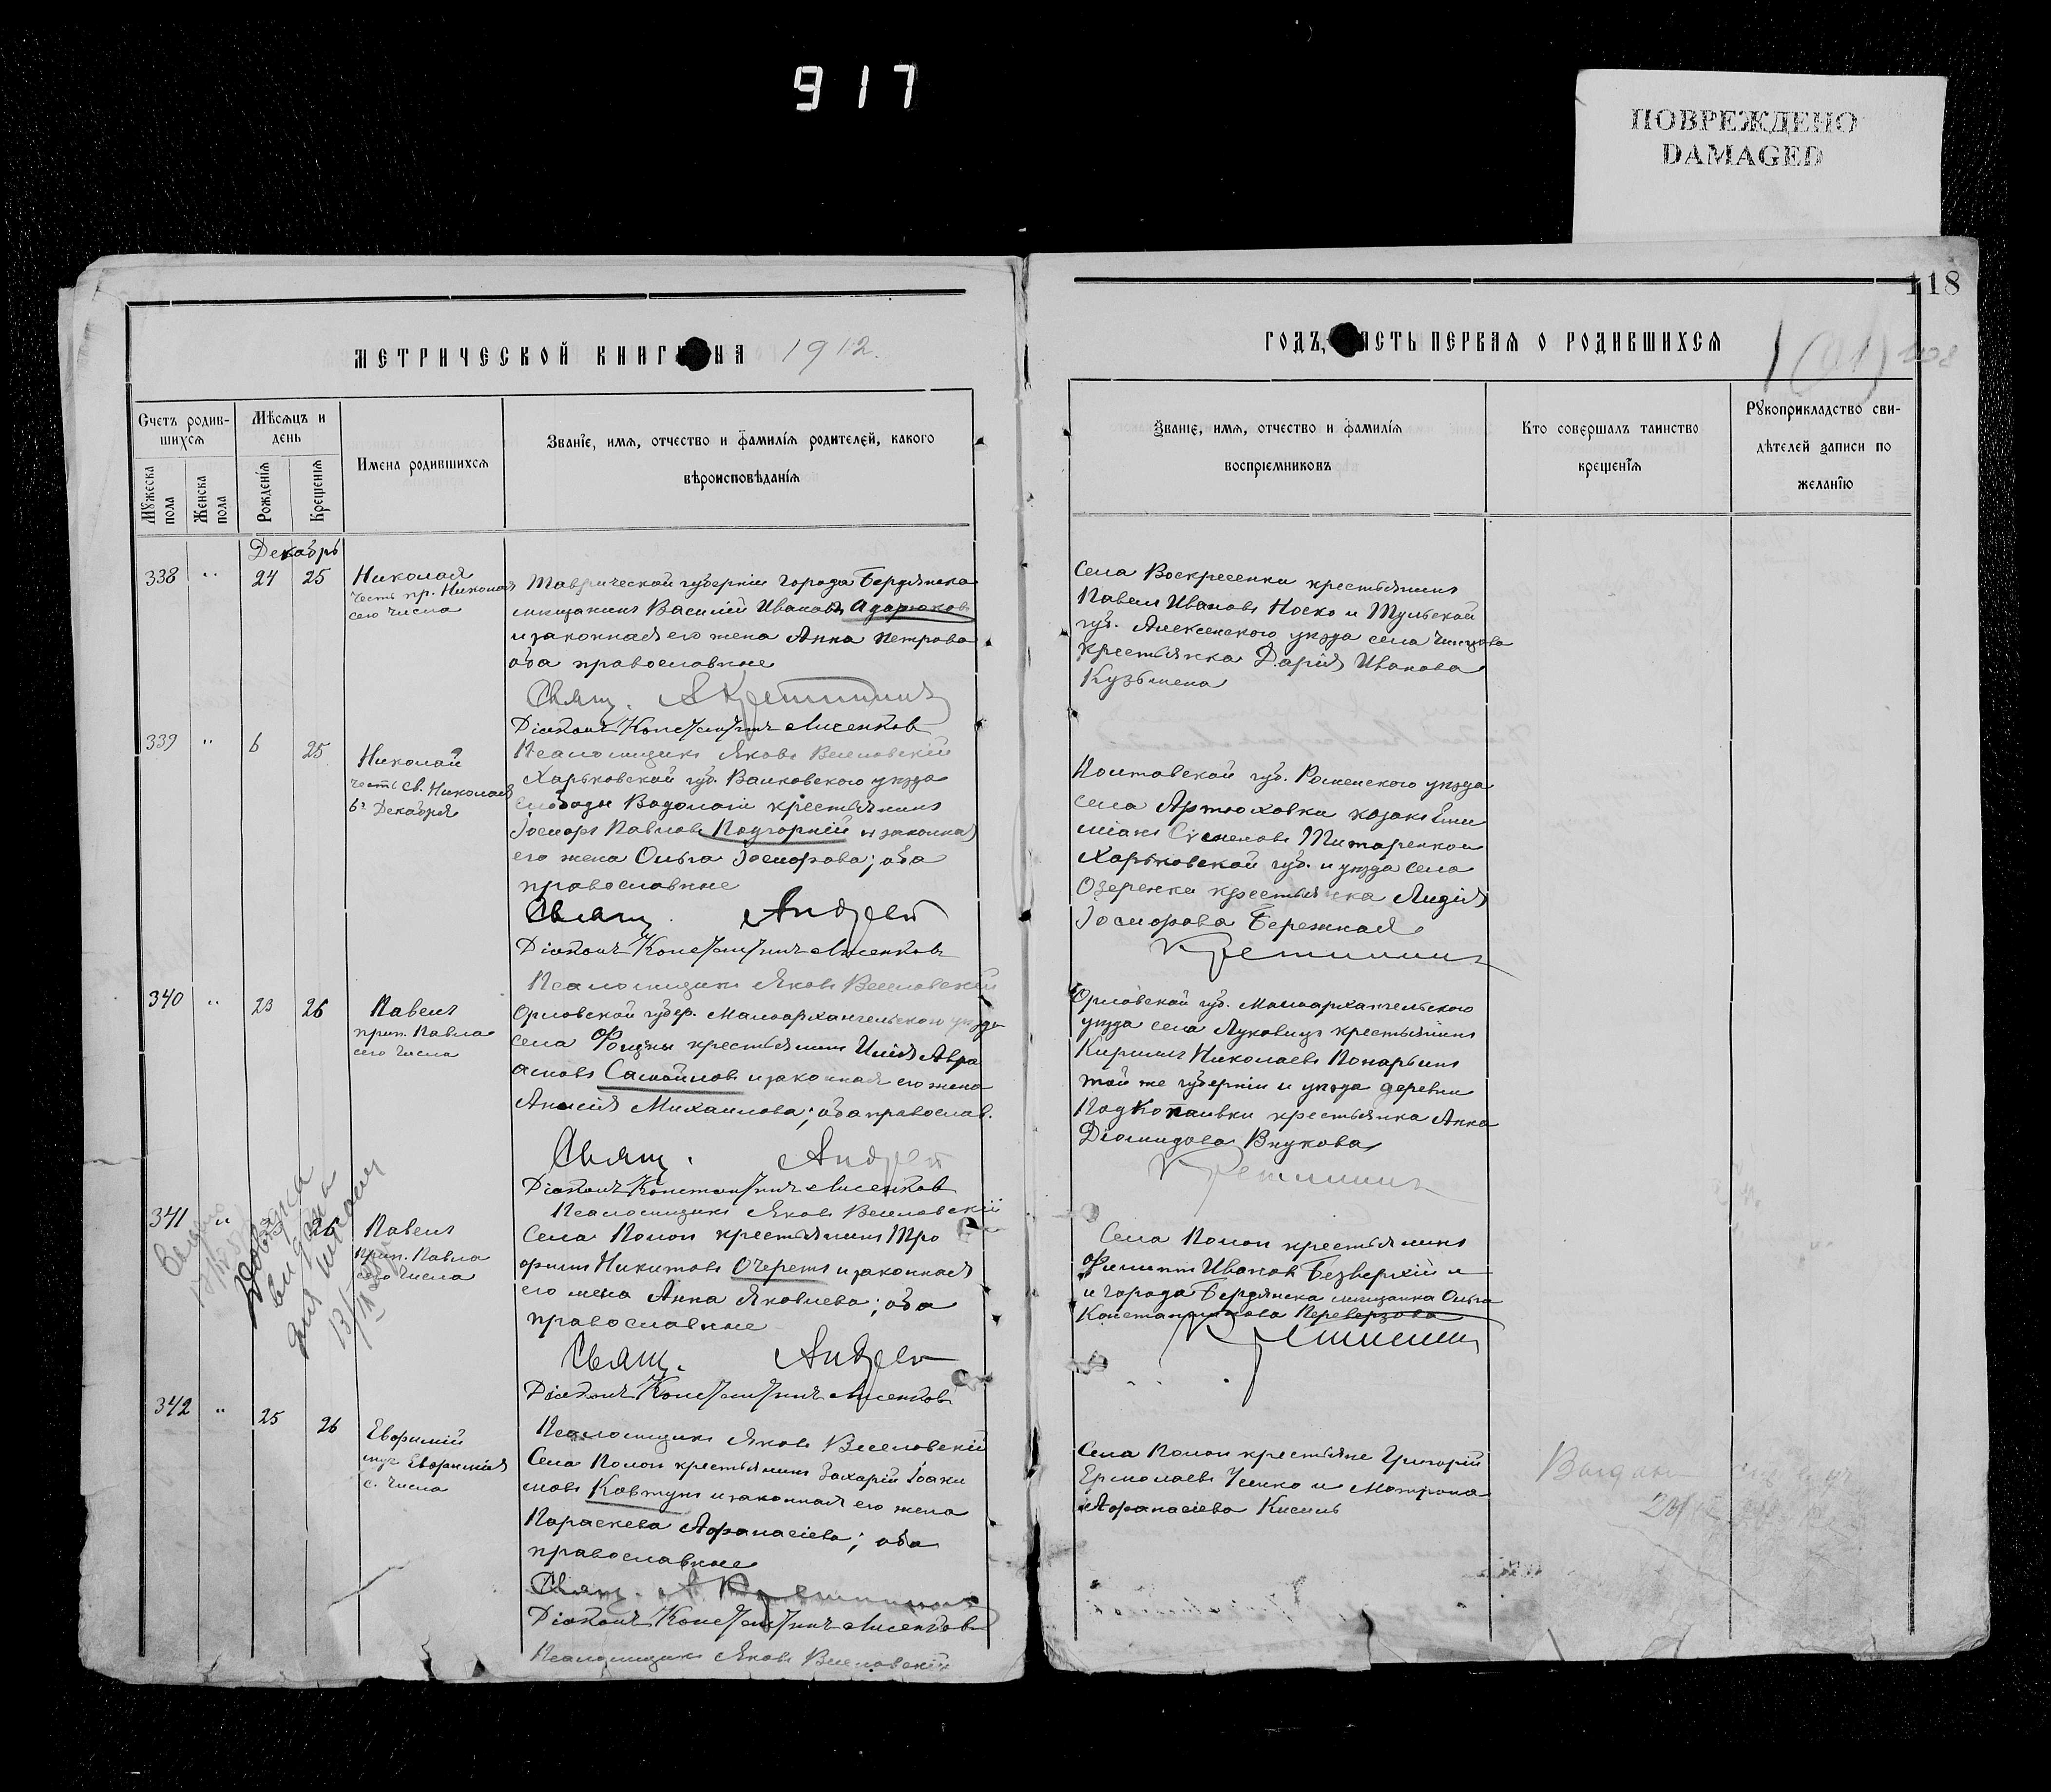 917
ПОВРЕЖДЕНО
DAMAGED
118
МЕТРИЧЕСКОЙ КНИГИ НА 1912.
ГОДЪ, ЧАСТЬ ПЕРВАЯ О РОДИВШИХСЯ
Счетъ родив-
шихся
Мѣсяцъ и
день
Мужеска
пола
Женска
пола
Рожденія
Крещенія
Имена родившихся
Званіе, имя, отчество и фамилія родителей, какого
вѣроисповѣданія
Званіе, имя, отчество и фамилія
воспріемниковъ
Кто совершалъ таинство
крещенія
Рукоприкладство сви-
дѣтелей записи по
желанію
Декабрь
338 " 24 25
Николай
честь пр. Николая
сего числа
Таврической губерніи города Бердянска
мещанинъ Василій Ивановъ
и законная его жена Анна Петрова
оба православные
Свящ. А Крещинин
Діаконъ Константинъ Лисенков
Псаломщикъ Яковъ Веселовскій
Села Воскресенки крестьянинъ
Павелъ Ивановъ Носко и Тульской
губ. Алексенского уѣзда села
крестьянка Дарія Иванова
Кузьмена
339 " 6 25
Николай
честь св. Николая
6го Декабря
Харьковской губ. Валковского уѣзда
слободы Водолаги крестьянинъ
Іосифъ Павловъ Подгорній и законная
его жена Ольга Іосифова; оба
православные
Свящ. Андрей
Діаконъ Константинъ Лисенковъ
Псаломщикъ Яковъ Веселовскій
Полтавской губ. Роменского уѣзда
села Артюховки козакъ
Титаренко и
Харьковской губ. и уѣзда села
Озеренки крестьянка Лидія
Іосифова Бережная
Крещинин
340 " 23 26
Павелъ
прип. Павла
сего числа
Орловской губер. Малоархангельского уѣзда
села крестьянинъ Илія Авра
амовъ Самойловъ и законная его жена
Анисія Михаилова; оба православ.
Свящ. Андрей
Діаконъ Константинъ Лисенков
Псаломщикъ Яковъ Веселовскій
Орловской губ. Малоархангельского
уѣзда села Луковицъ крестьянинъ
Кириллъ Николаевъ Понарьинъ
той же губерніи и уѣзда деревни
Подкопаивки крестьянка Анна
Діомидова Внукова
Крещинин
341 " 26
Павелъ
Прип. Павла
сего числа
Села Пологи крестьянинъ Тро
фимъ Никитовъ Очеретъ и законная
его жена Анна Яковлева; оба
православные
Свящ. Андрей
Діаконъ Константинъ Лисенков
Псаломщикъ Яковъ Веселовскій
Села Пологи крестьянинъ
Филиппъ Ивановъ Безверхій и
и города Бердянска мещанка Ольга
Константинова Переверзова
Крещинин
342 " 25 26
Евфимій
муч. Евфимія
с. числа
Села Пологи крестьянинъ Захарій Іоаки
мовъ Ковтунъ и законная его жена
Параскева Афанасіева; оба
православные
Свящ. А Крещинин
Діаконъ Константинъ Лисенков
Псаломщикъ Яковъ Веселовскій
Села Пологи крестьяне Григорій
Ермолаевъ Усенко и Матрона
Афанасіева Кисиль